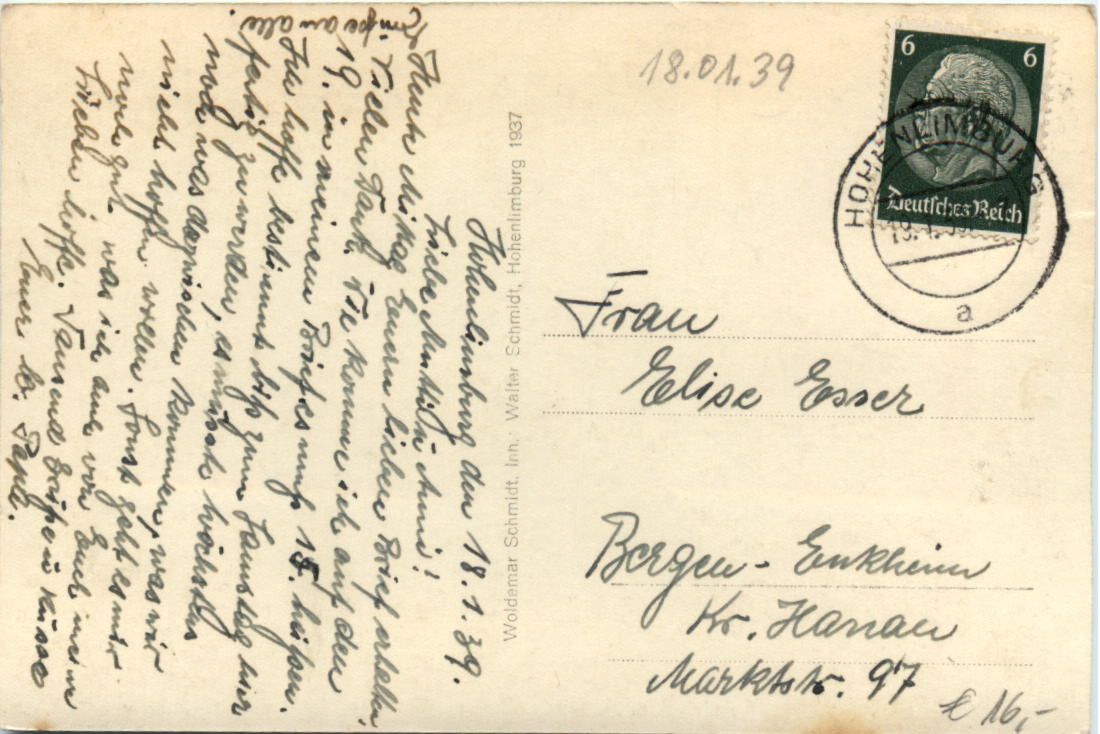 Hohenlimburg den 18.1.39.
Liebe Mutti u. Anni!
Heute Mittag Euern lieben Brief erhalten.
Vielen Dank. Wie komme ich auf den
19. in meinem Brief es muß 15. heißen.
Ich hoffe bestimmt biß zum Samstag hier
fertig zu werden, es müsste höchstens
noch was dazwischen kommen, was wir
nicht hoffen wollen. Sonst geht es mir
noch gut was ich auch von Euch meine
Lieben hoffe. Tausend Grüße u. Küsse
Euer lb. Papa.
Grüße an alle.
Woldemar Schmidt, Inh.: Walter Schmidt, Hohenlimburg 1937
18.01.39
6 6
Deutsches Reich
HOHENLIMBURG
a
Frau
Elise Esser
Bergen-Enkheim
Kr. Hanau
Marktstr. 97
€ 16,-